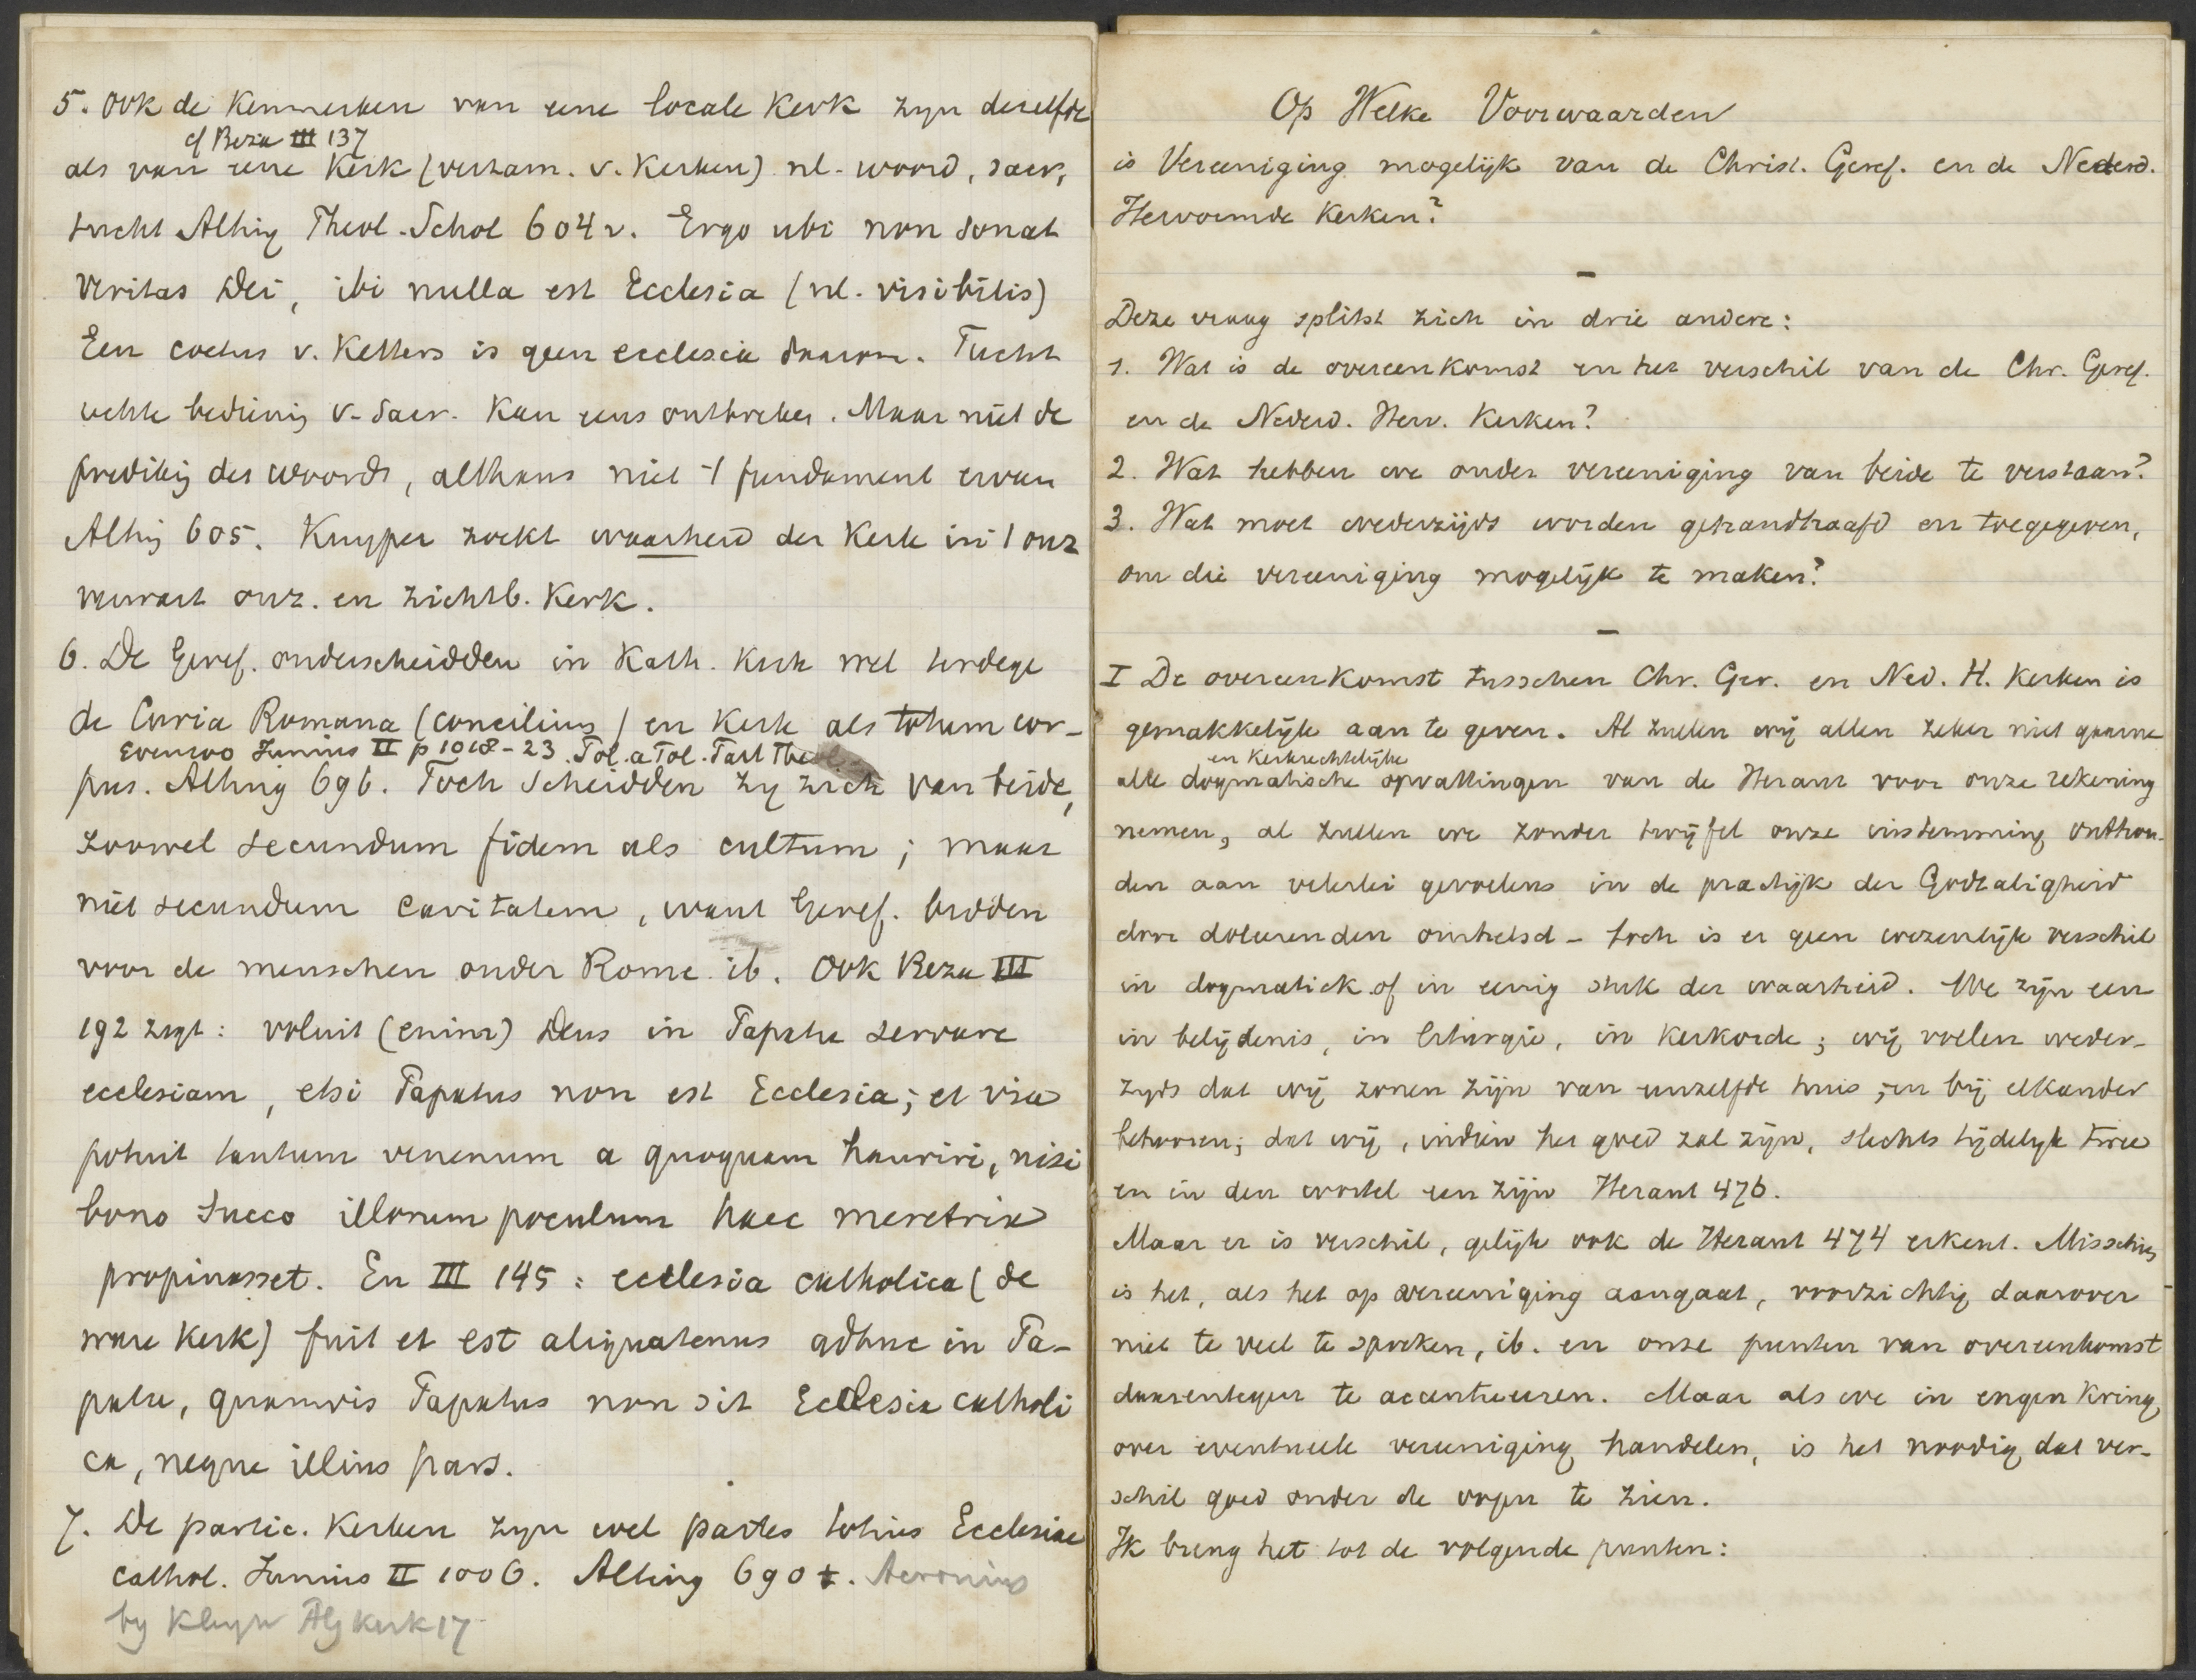 5. Ook de Kenmerken van eene locale Kerk zyn dezelfde
cf Beza III 137
als van eene Kerk (verzam. v. Kerken) nl. woord, sacr,
tucht Alting Theol. Schol 604 v. Ergo ubi non sonat
Veritas Dei, ibi nulla est Ecclesia (nl. visibilis)
Een coetus v. Ketters is geen ecclesia daarom. Tucht
echte bedienig v. Sacr. Kan eens ontbreken. Maar niet de
predikig des woords, althans niet 't fundament ervan
Altig 605. Kuyper zoekt waarheid der Kerk in 't onz
verwart onz. en zichtb. Kerk.
6. De Geref. onderscheidden in Kath. Kerk wel terdege
de Curia Romana (concilium) en Kerk als totum cor-
Evenzoo Junius II p 1018-23. Tol. a Tol. Tast Theol.
pus. Alting 696. Toch scheidden zy zich van beide,
zoowel secundum fidem als cultum; maar
niet secundum caritatem, want Geref. bidden
voor de menschen onder Rome ib. Ook Beza III
192 zegt: voluit (enim) Deus in Papatu servare
ecclesiam, etsi Papatus non est Ecclesia; et vix
potuit tantum venenum a quoquam hauriri, nisi
bono succo illorum poculum haec meretrix
propinasset. En III 145: ecclesia catholica (de
ware Kerk) fuit et est aliquatenus adhuc in Pa-
patu, quamvis Papatus non sit Ecclesia catholi
ca, neque illius pars.
7. De partic. Kerken zyn wel partes totius Ecclesiae
cathol. Junius II 1006. Alting 690 . Acronius
by Kleyn Alg Kerk 17
Op Welke Voorwaarden
is Vereeniging mogelijk van de Christ. Geref. en de Nederd.
Hervormde Kerken?
—
Deze vraag splitst zich in drie andere:
1. Wat is de overeenkomst en het verschil van de Chr. Geref.
en de Nederd. Herv. Kerken?
2. Wat hebben we onder vereeniging van beide te verstaan?
3. Wat moet wederzijds worden gehandhaafd en toegegeven,
om die vereeniging mogelijk te maken?
—
I De overeenkomst tusschen Chr. Ger. en Ned. H. Kerken is
gemakkelijk aan te geven. Al zullen wij allen zeker niet gaarne
en Kerkrechtelijke
alle dogmatische opvattingen van de Heraut voor onze rekening
nemen, al zullen we zonder twijfel onze instemming onthou-
den aan velerlei gevoelens in de practijk der Godzaligheid
door doleerenden omhelsd - toch is er geen wezenlijk verschil
in dogmatiek of in eenig stuk der waarheid. We zijn een
in belijdenis, in liturgie, in Kerkorde; wij voelen weder-
zyds dat wij zonen zijn van eenzelfde huis en bij elkander
behooren; dat wij, indien het goed zal zijn, slechts tijdelijk twee
en in den wortel een zijn Heraut 476.
Maar er is verschil, gelijk ook de Heraut 474 erkent. Misschien
is het, als het op vereeniging aangaat, voorzichtig daarover
niet te veel te spreken, ib. en onze punten van overeenkomst
daarentegen te accentueeren. Maar als we in engen Kring
over eventueele vereeniging handelen, is het noodig dat ver-
schil goed onder de oogen te zien.
Ik breng het tot de volgende punten: